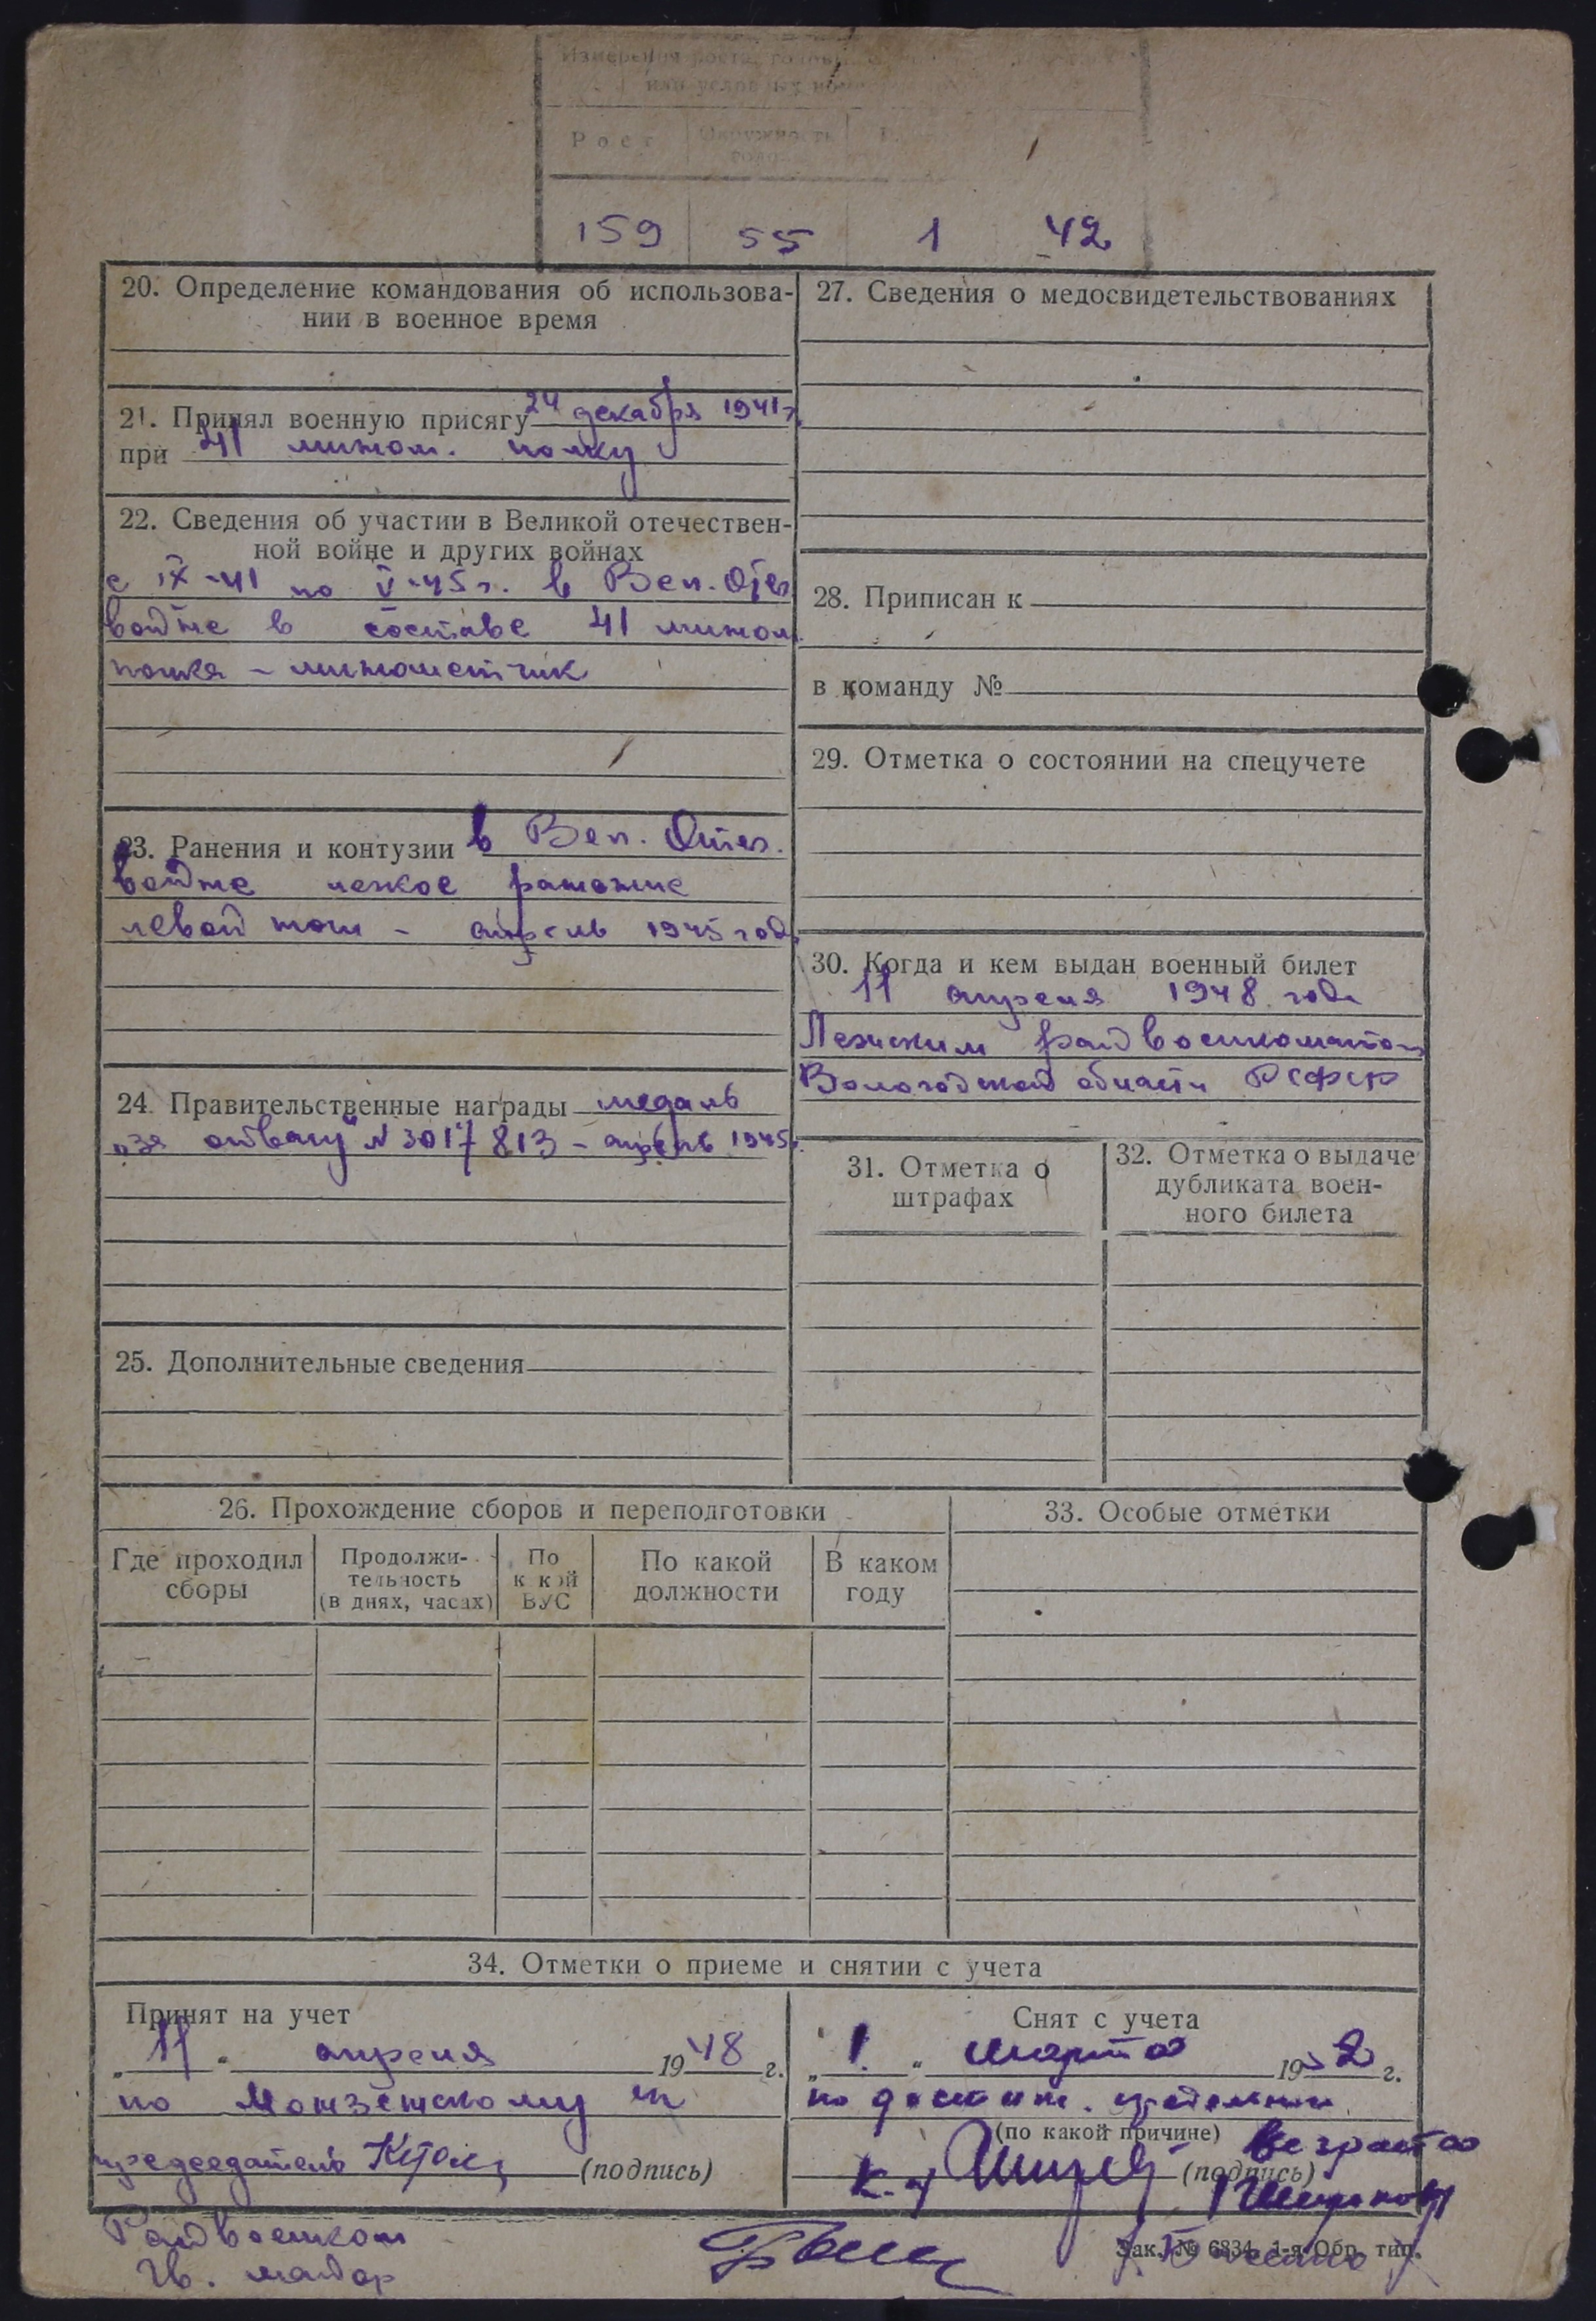 Измерения роста, головы
Рост Окружность голо
159 55 1 42
20. Определение командования об использова-
нии в военное время
21. Принял военную присягу 24 декабря 1941 г.
при 41 мином. полку
22. Сведения об участии в Великой отечествен-
ной войне и других войнах
с IX-41 по V-45 г. в Вел. Отеч
войне в составе 41 мином.
полка - минометчик
23. Ранения и контузии в Вел. Отеч.
войне легкое ранение
левой ноги - апрель 1945 года
24. Правительственные награды медаль
"за отвагу" N 3017813 - апрель 1945 г.
25. Дополнительные сведения
26. Прохождение сборов и переподготовки
Где проходил сборы
Продолжи-
тельность
(в днях, часах)
По
к кой
ВУС
По какой
должности
В каком
году
27. Сведения о медосвидетельствованиях
28. Приписан к
в команду №
29. Отметка о состоянии на спецучете
30. Когда и кем выдан военный билет
11 апреля 1948 года
Лежским райвоенкоматом
Вологодской области РСФСР
31. Отметка о
штрафах
32. Отметка о выдаче
дубликата воен-
ного билета
33. Особые отметки
34. Отметки о приеме и снятии с учета
Принят на учет
„11“ апреля 1948 г.
по
председатель
(подпись)
Райвоенком
Гв. майор
Снят с учета
„1.“ марта 1952 г.
по достиж. предельного
(по какой причине) возраста
(подпись)
Зак. № 6834. 1-я Обр. тип.